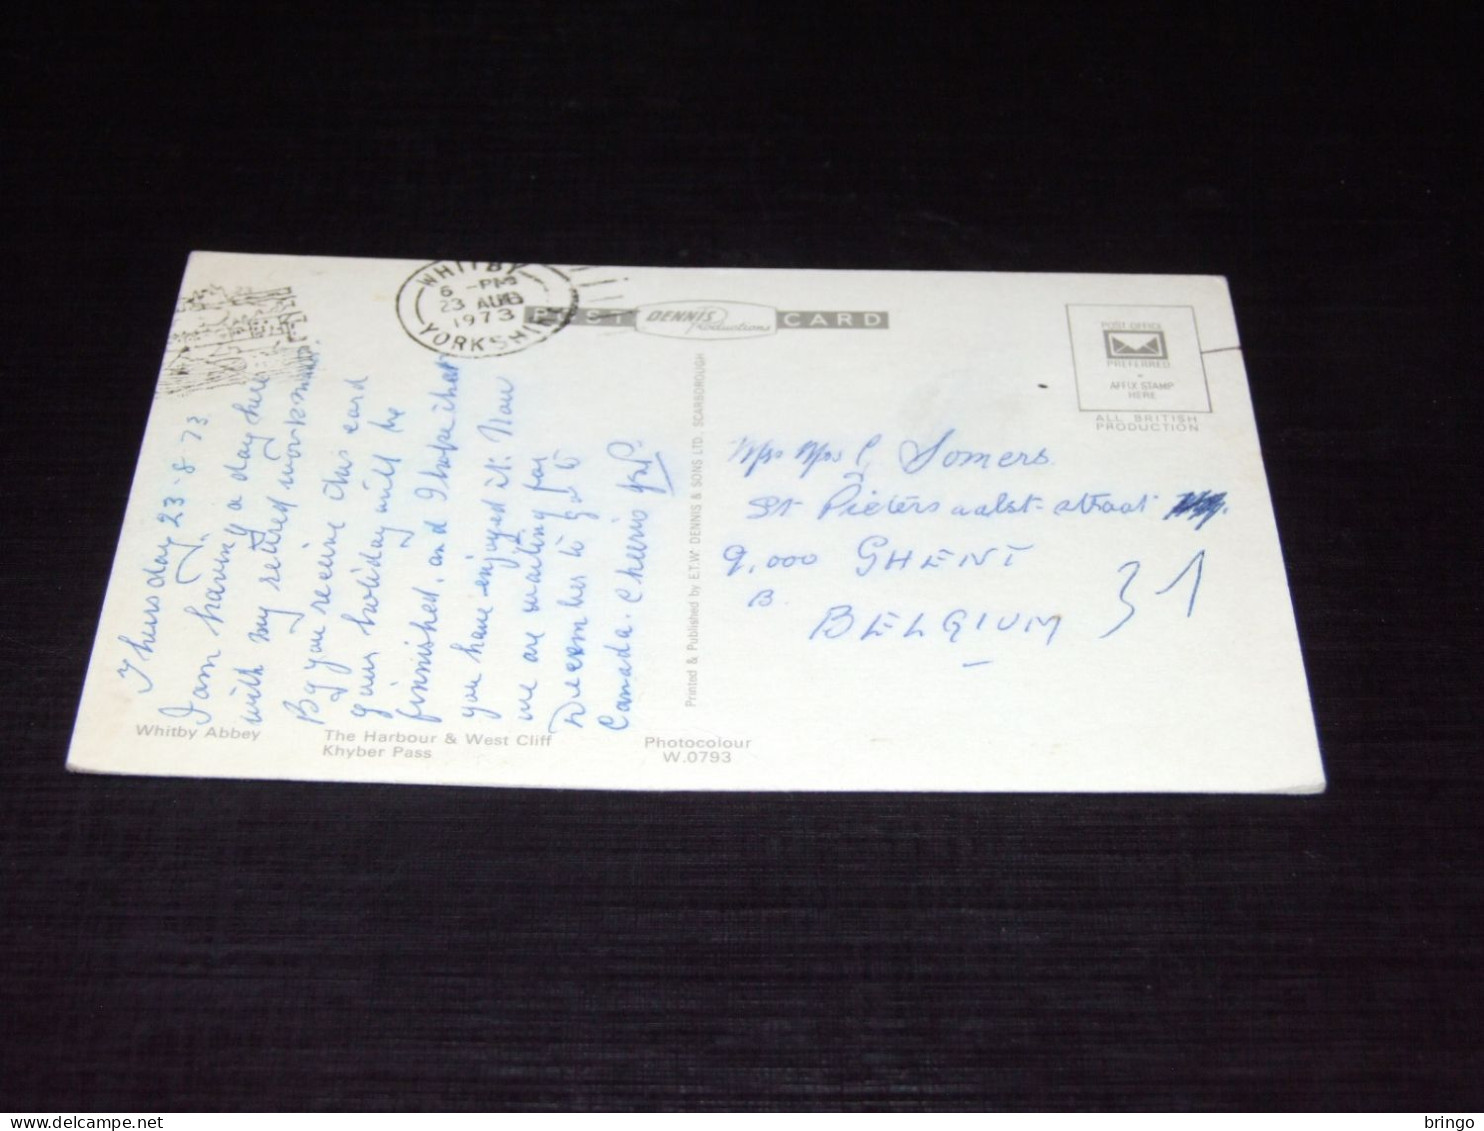 WHITBY
6 - PM
23 AUG
1973
YORKSHIRE
POST DENNIS Productions CARD
POST OFFICE
PREFERRED
AFFIX STAMP
HERE
ALL BRITISH
PRODUCTION
Thursday 23-8-73
I am having a day here
with my retired workman.
By you receive this card
your holiday will be
finnished, and I hope that
you have enjoyed it. Now
we are waiting for
December to go to
Canada. Cheerio
Printed & Published by E.T.W. DENNIS & SONS LTD. SCARBOROUGH
Somers
St Pieters aalst-straat
9,000 GHENT
B.
BELGIUM
31
Whitby Abbey
The Harbour & West Cliff
Khyber Pass
Photocolour
W.0793
bringo
www.delcampe.net